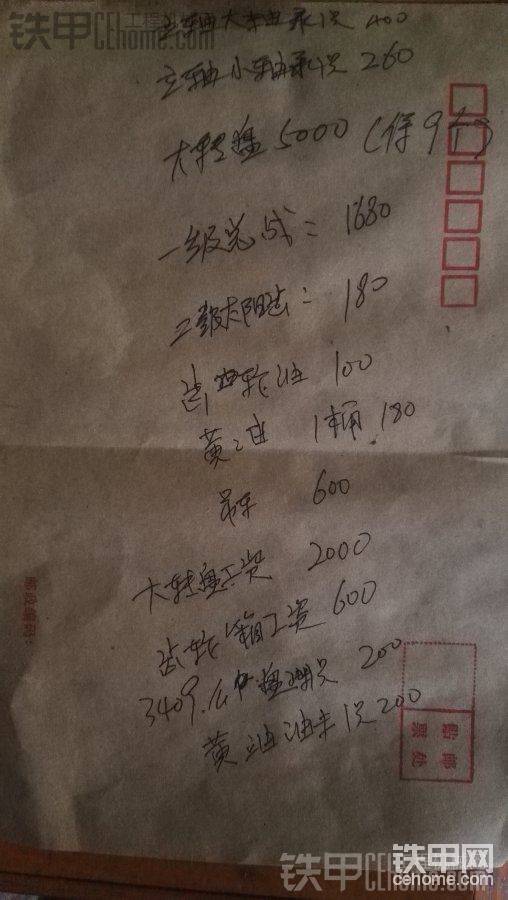 铁甲工程机械网 CEhome.com
主轴大轴承1只 400
主轴小轴承1只 260
大转盘 5000 (保9个)
一级总成: 1680
二级太阳齿: 180
齿轮油 100
黄油 1桶 180
吊车 600
大转盘工资 2000
齿轮箱工资 600
200
黄油油 1只 200
邮政编码:
贴邮
票处
铁甲网
cehome.com
铁甲 CEhome.com